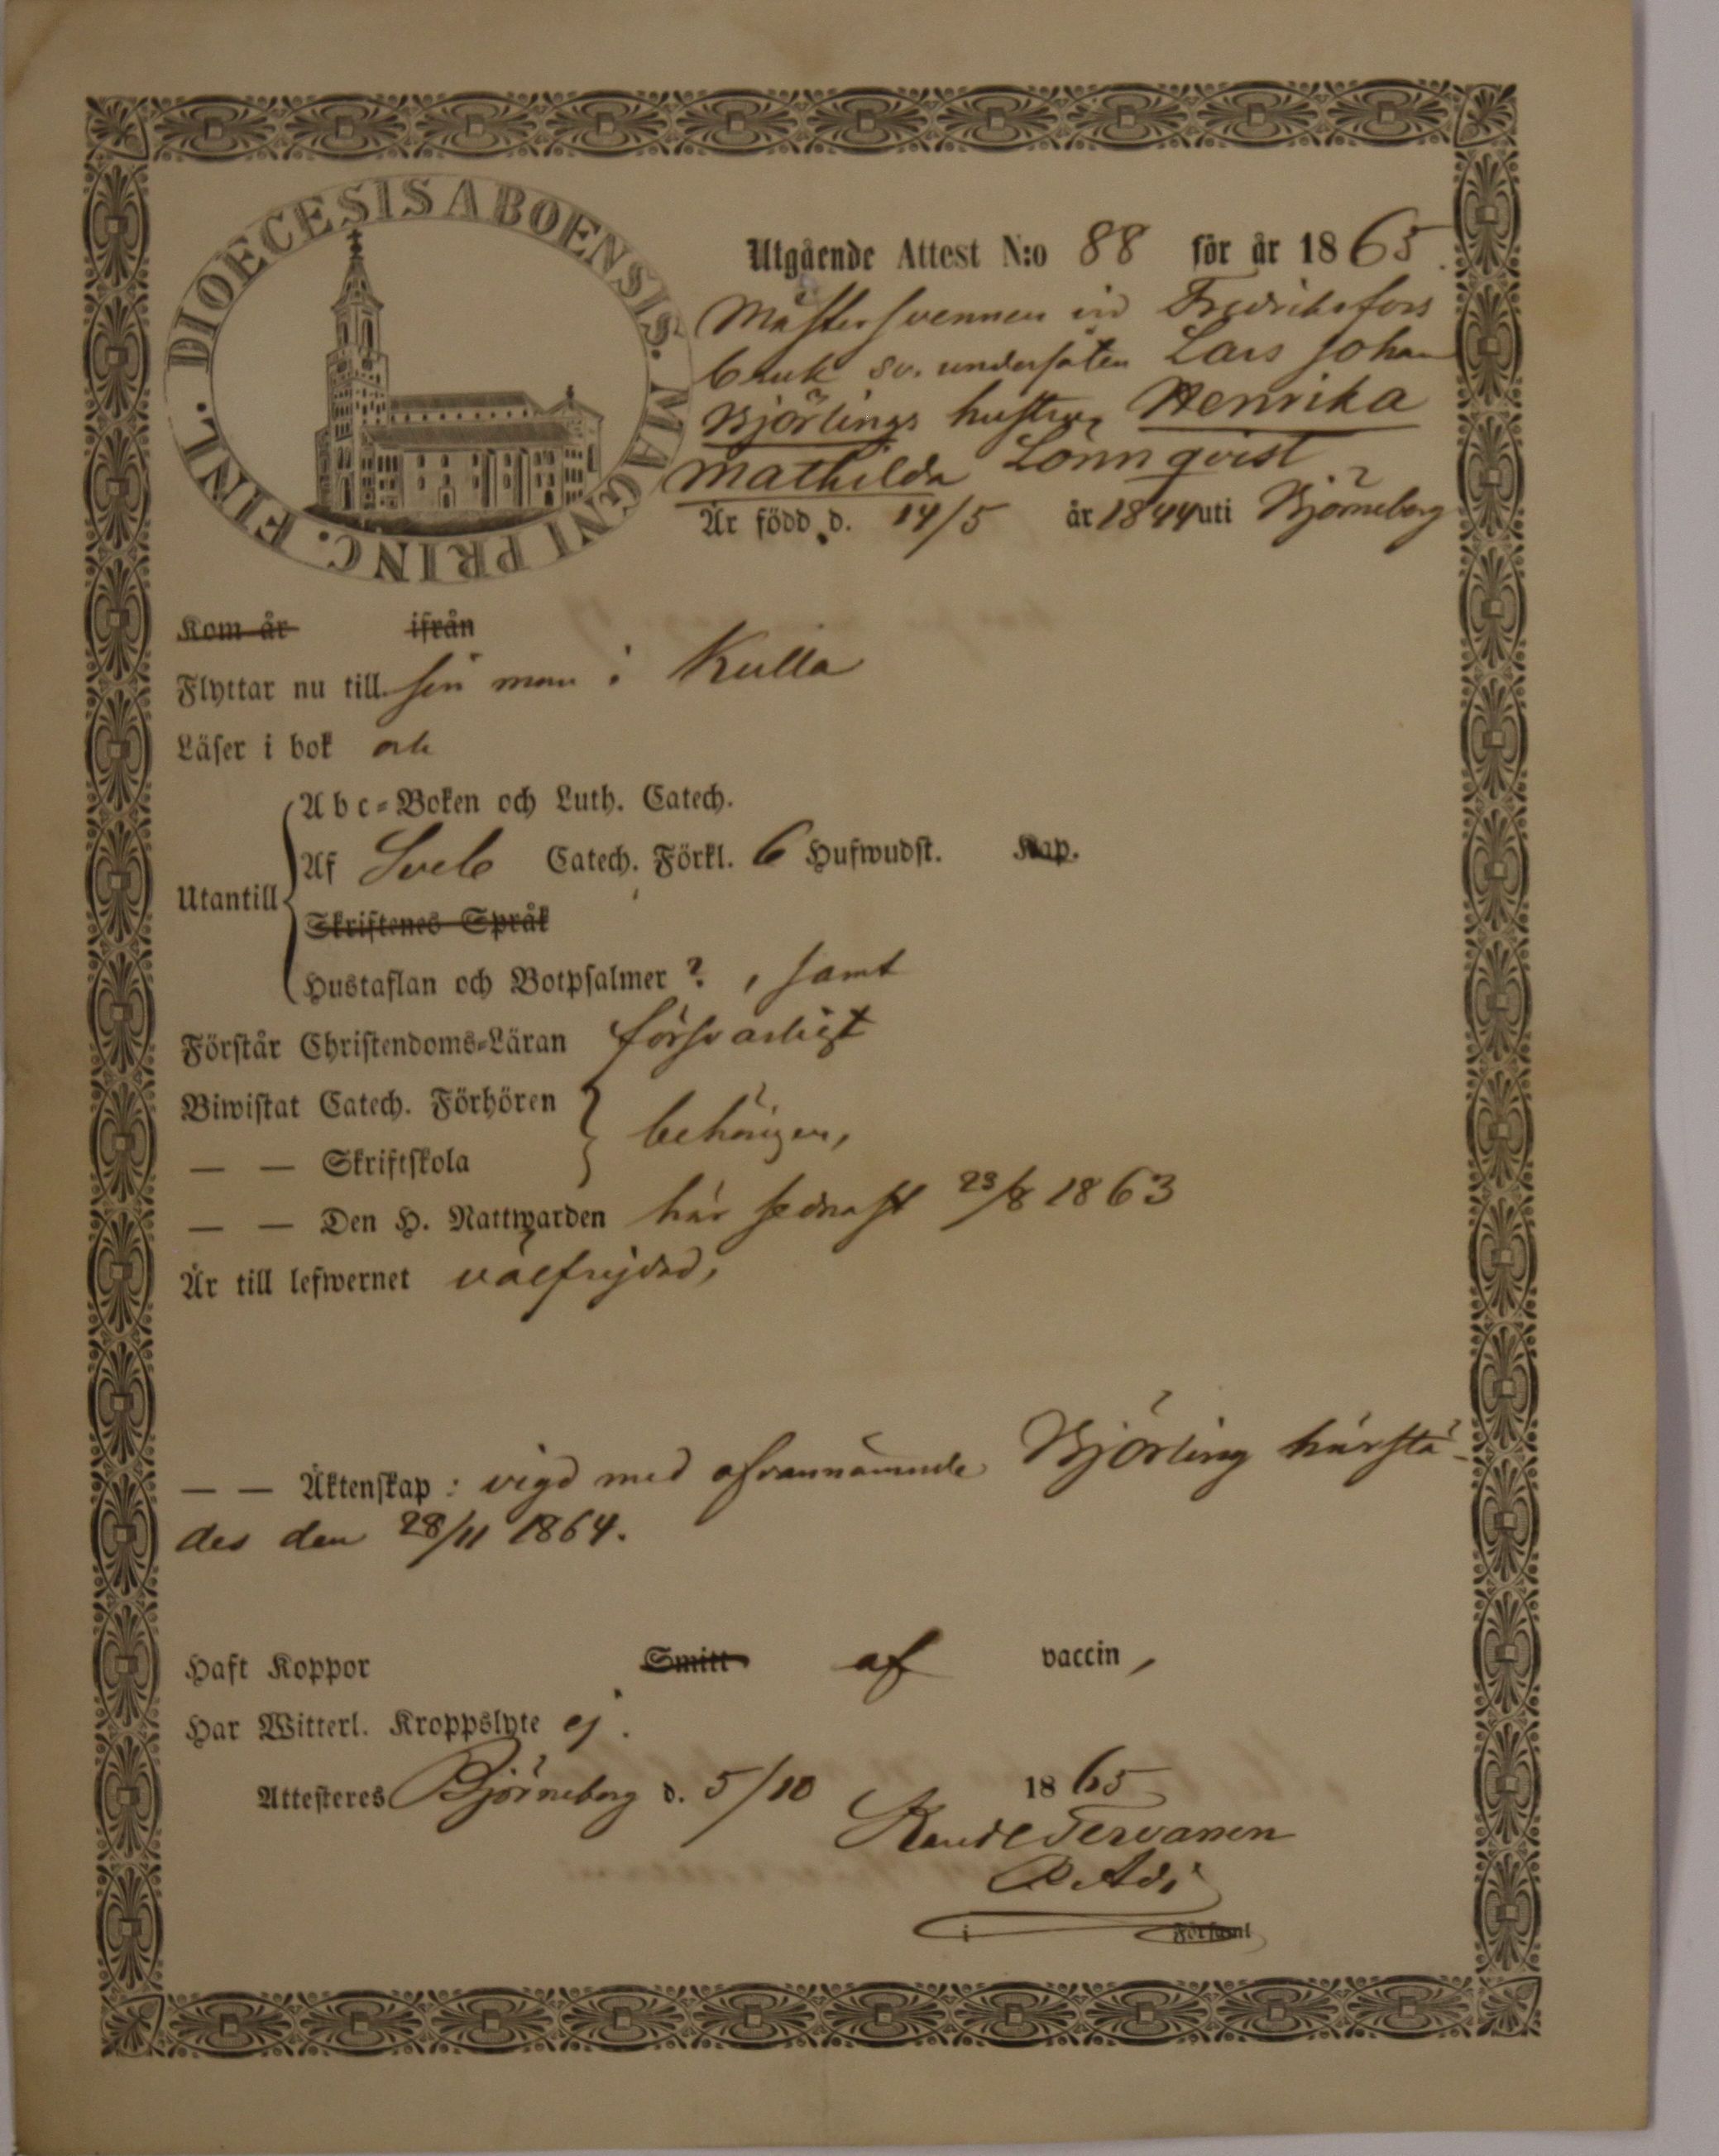 DIOECESIS ABOENSIS. MAGNI PRINC. FINL.
Utgående Attest N:o 88 för år 1865.
Mästersvennen vid Fredriksfors
bruk sv. undersåten Lars Johan
Björlings hustru, Henrika
Mathilda Lönnqvist
Är född d. 14/5 år 1844 uti Björneborg
Kom år ifrån
Flyttar nu till sin man i Kulla
Läser i bok och
Abc-Boken och Luth. Catech.
Af Sveb Catech. Förkl. 6 Hufwudst. Kap.
Utantill
Skriftenes Språk
Hustaflan och Botpsalmer ?, samt
Förstår Christendoms-Läran försvarligt
Biwistat Catech. Förhören
behörigen,
— — Skriftskola
— — Den H. Nattwarden här sednast 23/8 1863
Är till lefwernet välfrejdad,
— — Äktenskap: vigd med ofvannämnde Björling härstä-
des den 28/11 1864.
Haft Koppor Smitt af vaccin,
Har Witterl. Kroppslyte ej.
Attesteres Björneborg d. 5/10 1865
Tervanen
Adj
i Församl